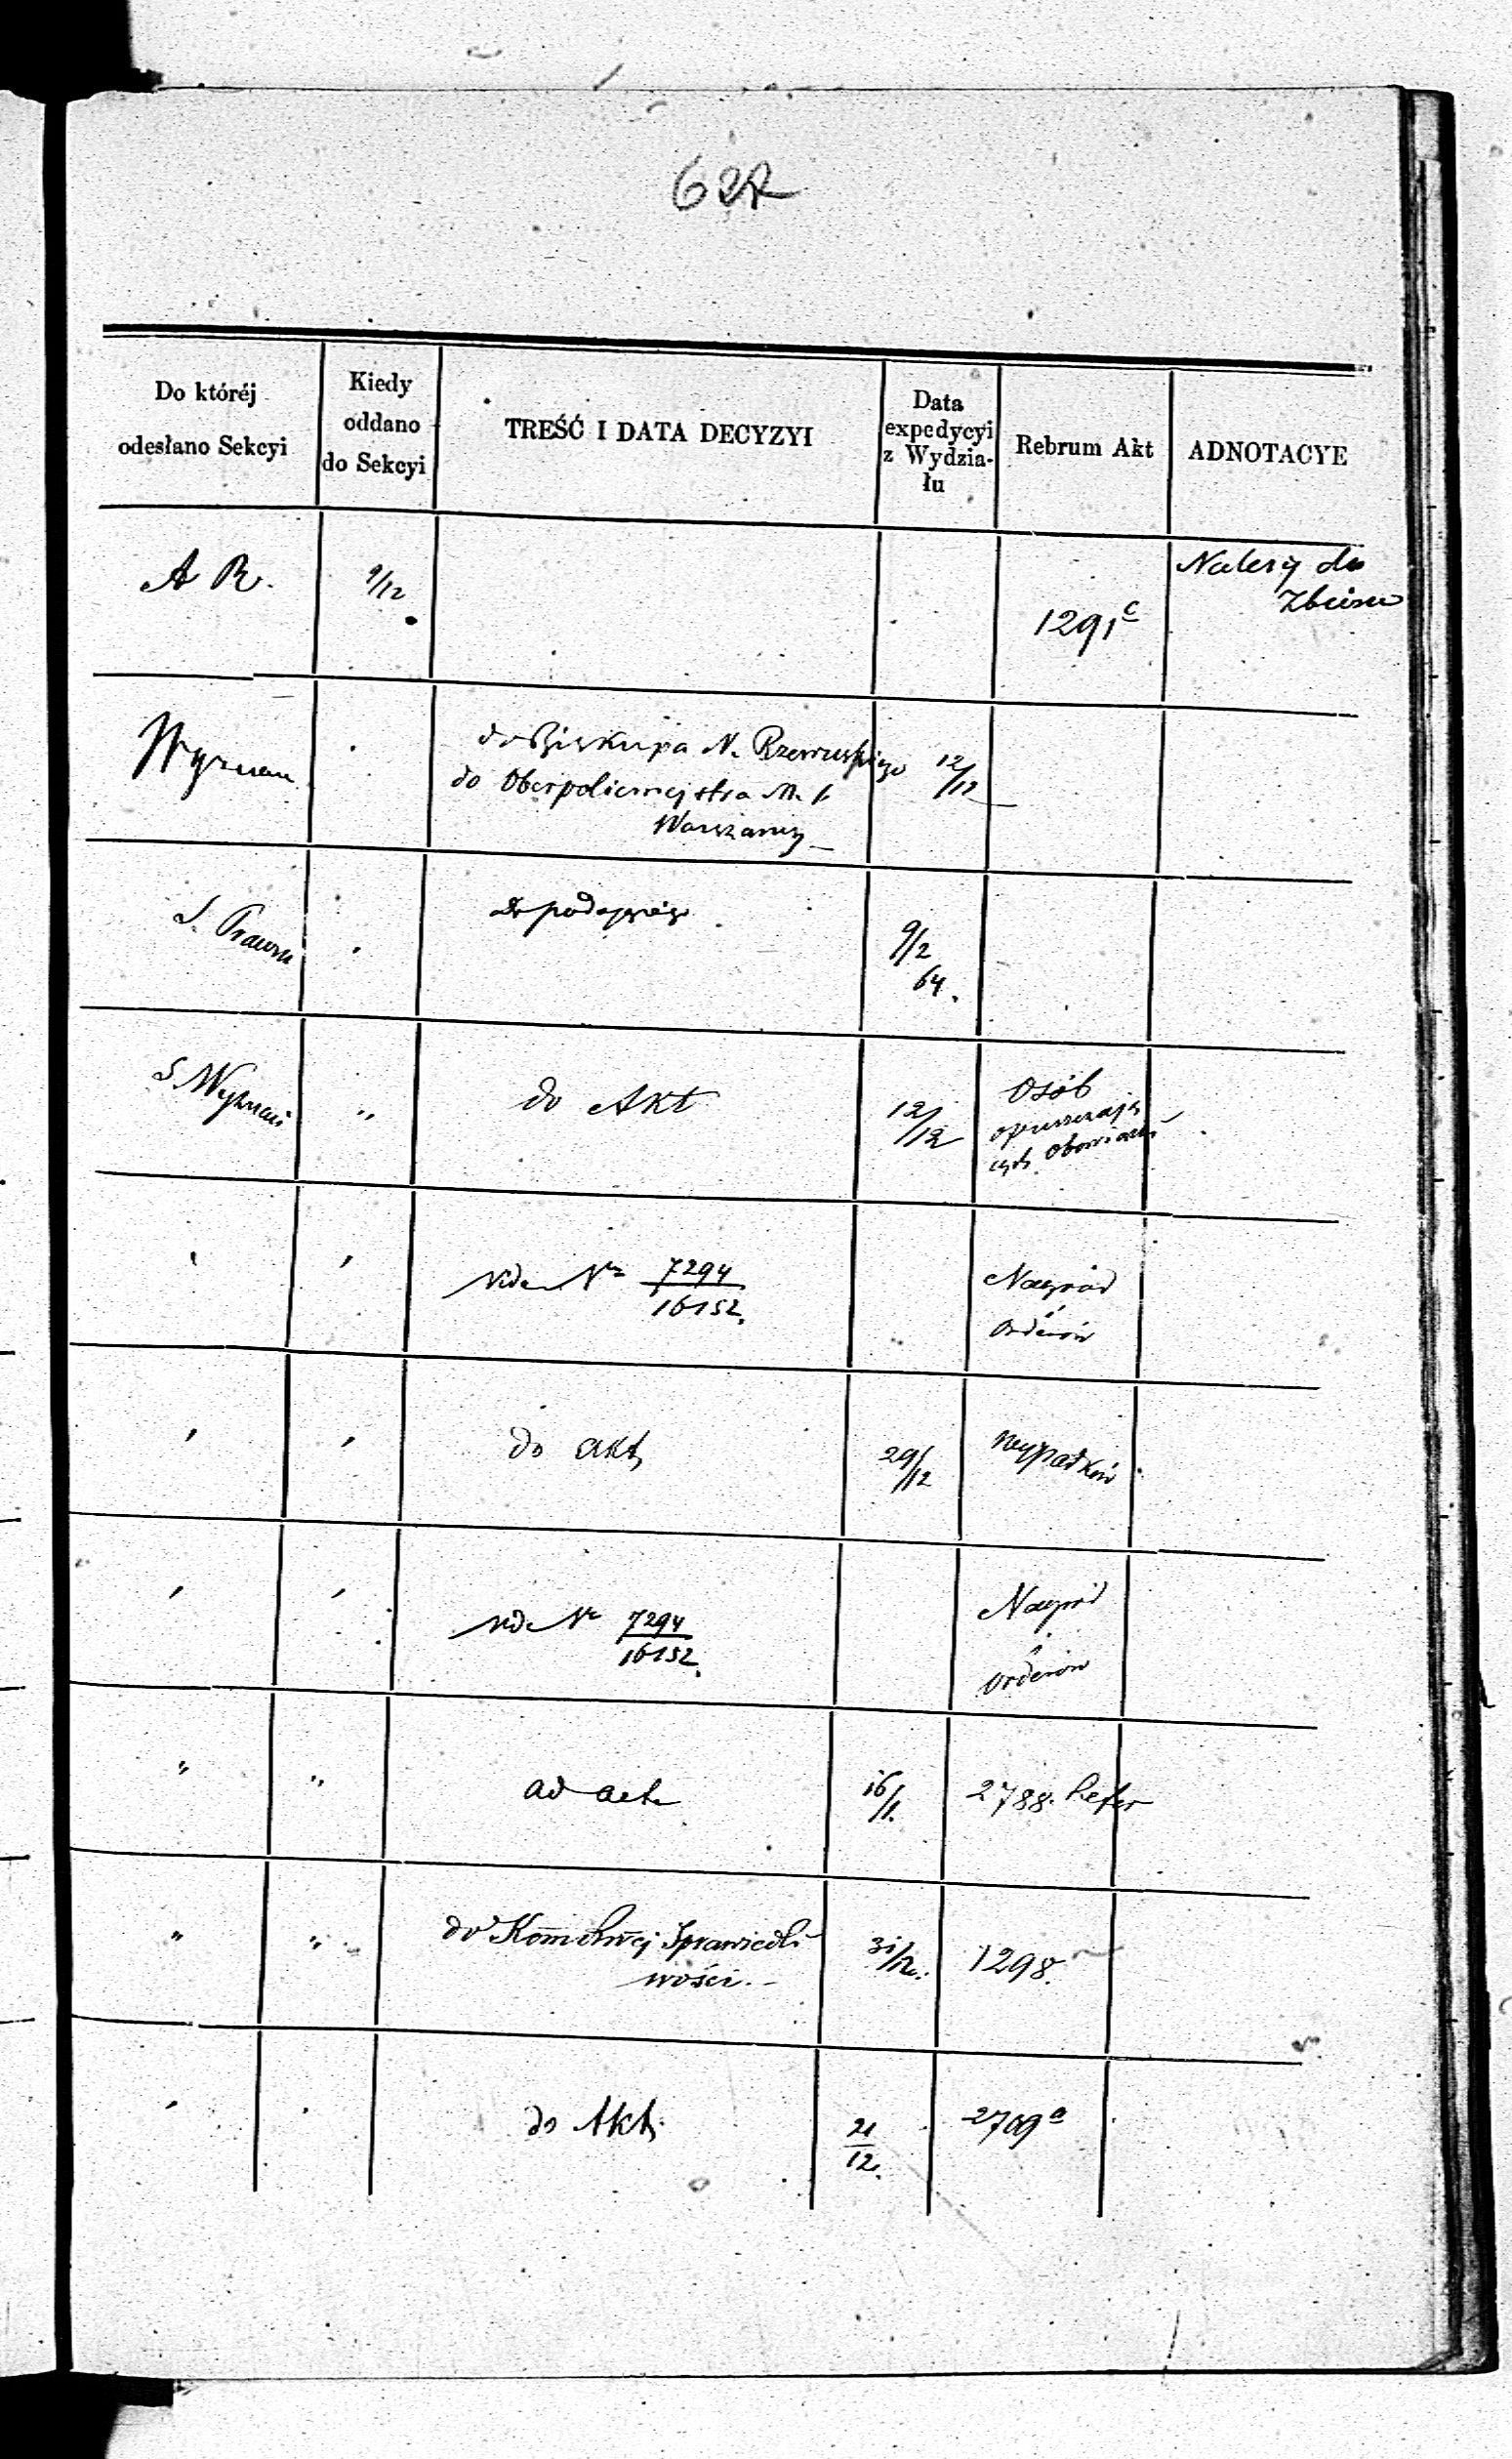 Do któréj
odesłano Sekcyi
Kiedy
oddano
do Sekcyi
TREŚĆ I DATA DECYZYI
Data
expedycyi
z Wydzia-
łu
Rebrum Akt
ADNOTACYE
A R.
9/12
1291 c
Należy do
Zbioru
Wyznań
do Biskupa N. Rzewuskiego
do Oberpolicmejstra M.
Warszawy
12/12
S. Prawna
Do podającego
9/2
64.
S. Wyznań
"
do Akt
12/12
Osób
opuszczają
cych obowiązki
vide Nr 7294
16152.
Nagród
i
orderów
do akt
29/12
wypadków
vide Nr 7294
16152.
Nagród
i
orderów
"
"
ad acta
16/1.
2788. Refer
"
"
do Kom Rwej Sprawiedli
wości.
31/12.
1298.
do Akt
21
12.
2709 a